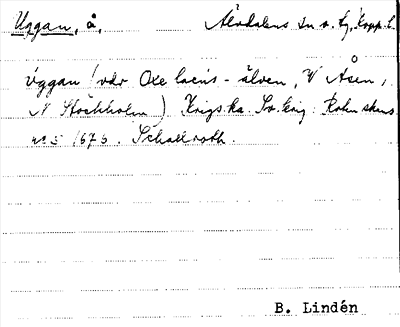 Uggan, å. Älvdalens sn o. tg, Kopp. l.
Uggan (vär Oxe lacus - älven, V Åsen,
N Stockholm) Krigska. Sv. krig:
no 5 1676. Schallroth.
B. Lindén